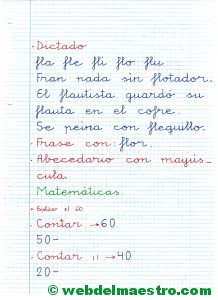 · Dictado
fla fle fli flo flu
Fran nada sin flotador.
El flautista guardó su
flauta en el cofre.
Se peina con flequillo.
· Frase con: flor.
· Abecedario con mayús-
cula.
Matemáticas.
· Explicar el 60
· Contar → 60
50-
· Contar 11 → 40
20-
© webdelmaestro.com